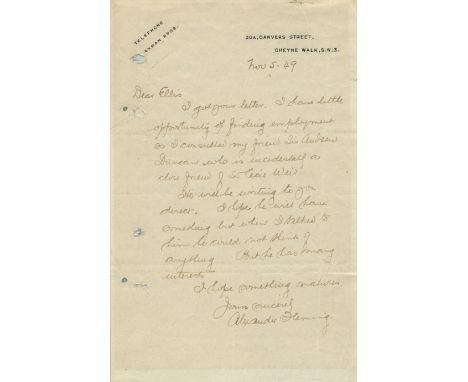 TELEPHONE
20A, DANVERS STREET,
CHEYNE WALK, S.W.3.
Nov 5. 49
Dear Ellis
I got your letter. I have little
opportunity of finding employment
so I consulted my friend Sir Andrew
Duncan who is incidentally a
close friend of Sir Cecil Weir.
Sir will be writing to you
direct. I hope he will have
something but when I talked to
him he could not think of
anything But he has many
interests
I hope something matures
Yours sincerely
Alexander Fleming